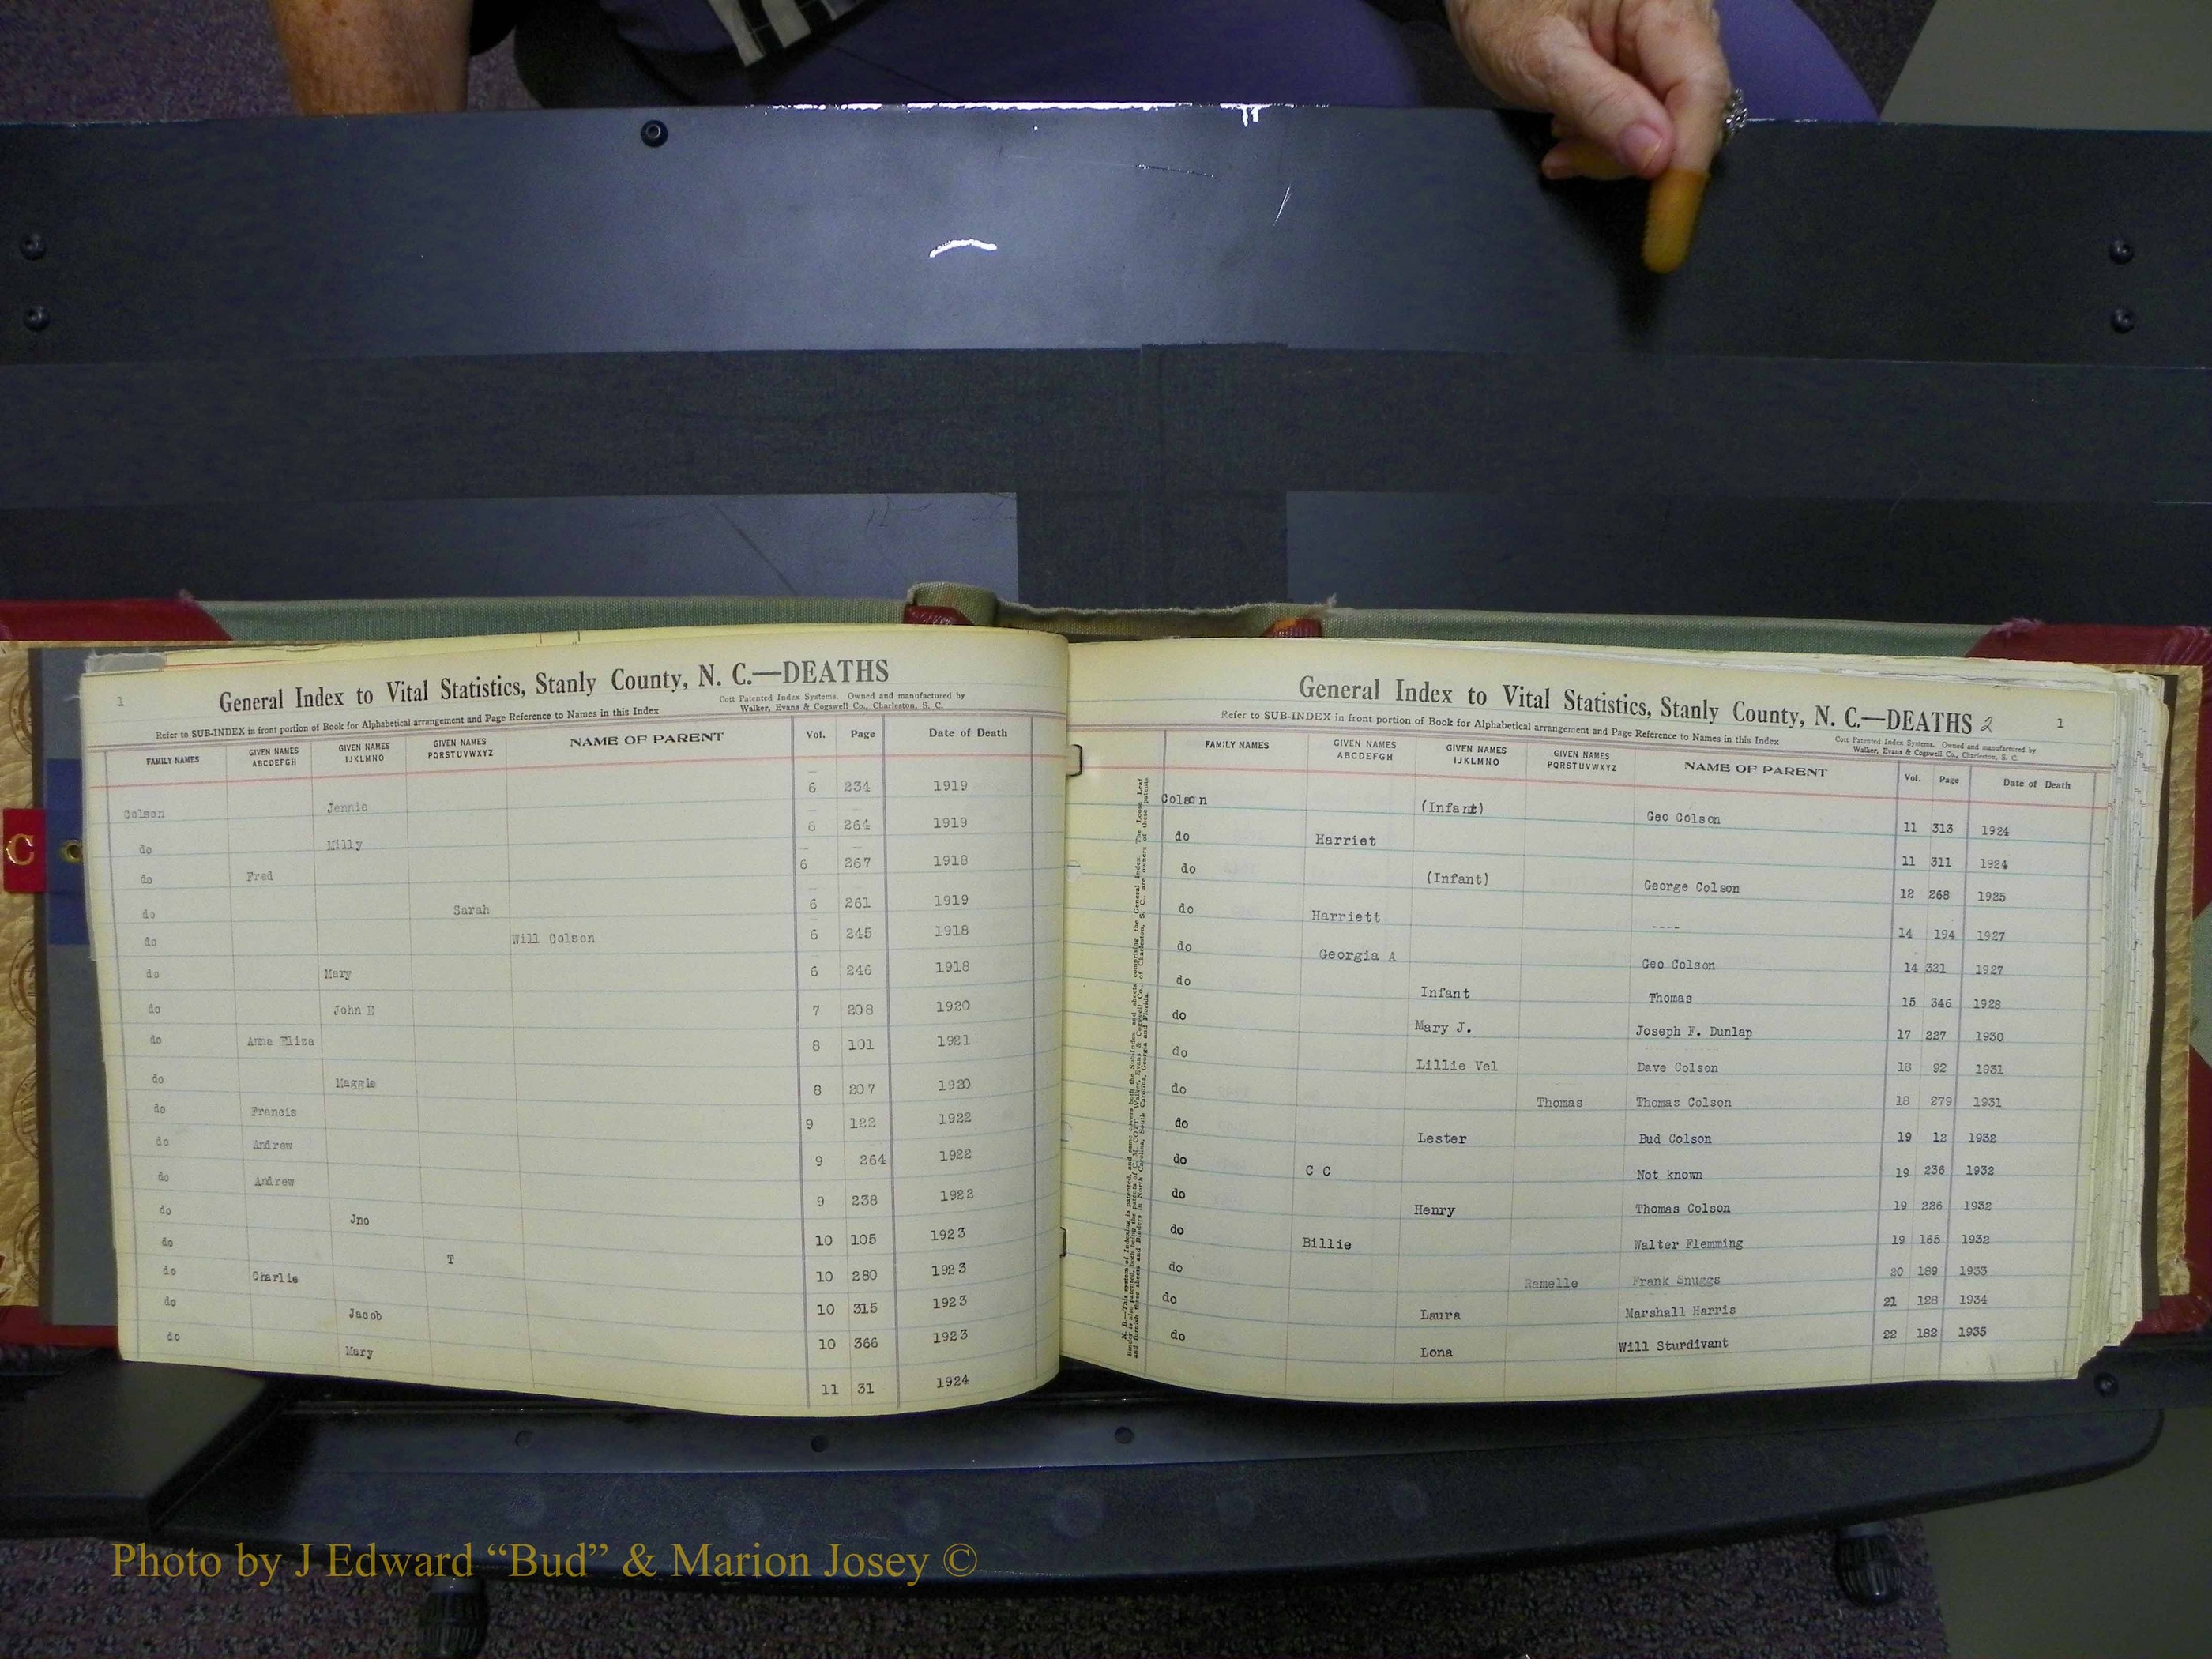 1
General Index to Vital Statistics, Stanly County, N. C.—DEATHS
Refer to SUB-INDEX in front portion of Book for Alphabetical arrangement and Page Reference to Names in this Index
Cott Patented Index Systems. Owned and manufactured by
Walker, Evans & Cogswell Co., Charleston, S. C.
FAMILY NAMES GIVEN NAMES ABCDEFGH GIVEN NAMES IJKLMNO GIVEN NAMES PQRSTUVWXYZ NAME OF PARENT Vol. Page Date of Death
Colson Jennie 6 234 1919
do Milly 6 264 1919
do Fred 6 267 1918
do Sarah 6 261 1919
do Will Colson 6 245 1918
do Mary 6 246 1918
do John E 7 208 1920
do Anna Eliza 8 101 1921
do Maggie 8 207 1920
do Francis 9 122 1922
do Andrew 9 264 1922
do Andrew 9 238 1922
do Jno 10 105 1923
do T 10 280 1923
do Charlie 10 315 1923
do Jacob 10 366 1923
do Mary 11 31 1924
C
General Index to Vital Statistics, Stanly County, N. C.—DEATHS 2
1
Refer to SUB-INDEX in front portion of Book for Alphabetical arrangement and Page Reference to Names in this Index
Cott Patented Index Systems. Owned and manufactured by
Walker, Evans & Cogswell Co., Charleston, S. C.
FAMILY NAMES GIVEN NAMES ABCDEFGH GIVEN NAMES IJKLMNO GIVEN NAMES PQRSTUVWXYZ NAME OF PARENT Vol. Page Date of Death
Colson (Infant) Geo Colson 11 313 1924
do Harriet 11 311 1924
do (Infant) George Colson 12 268 1925
do Harriett ---- 14 194 1927
do Georgia A Geo Colson 14 321 1927
do Infant Thomas 15 346 1928
do Mary J. Joseph F. Dunlap 17 227 1930
do Lillie Vel Dave Colson 18 92 1931
do Thomas Thomas Colson 18 279 1931
do Lester Bud Colson 19 12 1932
do C C Not known 19 236 1932
do Henry Thomas Colson 19 226 1932
do Billie Walter Flemming 19 165 1932
do Ramelle Frank Snuggs 20 189 1933
do Laura Marshall Harris 21 128 1934
do Lona Will Sturdivant 22 182 1935
Photo by J Edward “Bud” & Marion Josey ©